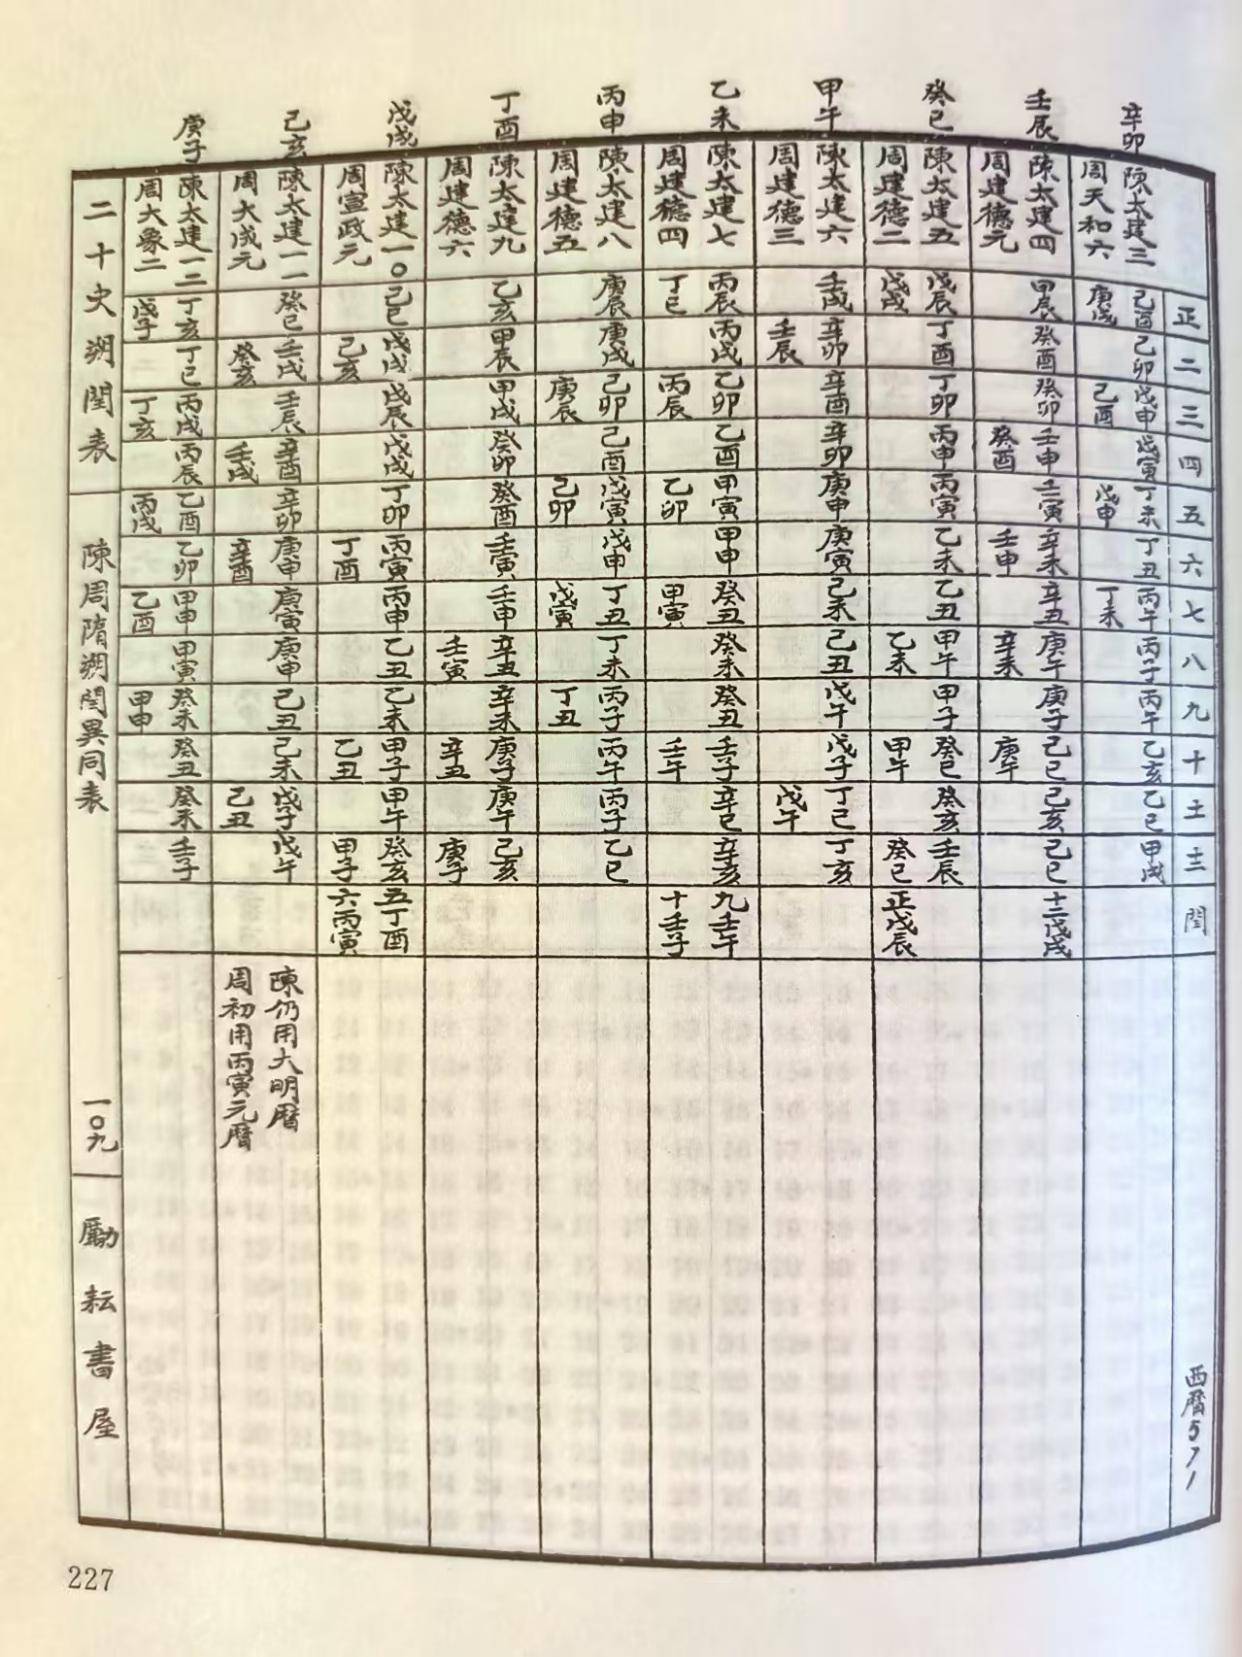 正 二 三 四 五 六 七 八 九 十 十一 十二 閏 西曆571
辛卯
陳太建三 己酉 己卯 戊申 戊寅 丁未 丁丑 丙午 丙子 丙午 乙亥 乙巳 甲戌
周天和六 庚戌 己酉 戊申 丁未
壬辰
陳太建四 甲辰 癸酉 癸卯 壬申 壬寅 辛未 辛丑 庚午 庚子 己巳 己亥 己巳 十二戊戌
周建德元 癸酉 壬申 辛未 庚午
癸巳
陳太建五 戊辰 丁酉 丁卯 丙申 丙寅 乙未 乙丑 甲午 甲子 癸巳 癸亥 壬辰
周建德二 戊戌 乙未 甲午 癸巳 正戊辰
甲午
陳太建六 壬戌 辛卯 辛酉 辛卯 庚申 庚寅 己未 己丑 戊午 戊子 丁巳 丁亥
周建德三 壬辰 戊午
乙未
陳太建七 丙辰 丙戌 乙卯 乙酉 甲寅 甲申 癸丑 癸未 癸丑 壬子 辛巳 辛亥 九壬午
周建德四 丁巳 丙辰 乙卯 甲寅 壬午 十壬子
丙申
陳太建八 庚辰 庚戌 己卯 己酉 戊寅 戊申 丁丑 丁未 丙子 丙午 丙子 乙巳
周建德五 庚辰 己卯 戊寅 丁丑
丁酉
陳太建九 乙亥 甲辰 甲戌 癸卯 癸酉 壬寅 壬申 辛丑 辛未 庚子 庚午 己亥
周建德六 壬寅 辛丑 庚子
戊戌
陳太建一〇 己巳 戊戌 戊辰 戊戌 丁卯 丙寅 丙申 乙丑 乙未 甲子 甲午 癸亥 五丁酉
周宣政元 己亥 丁酉 乙丑 甲子 六丙寅
己亥
陳太建一一 癸巳 壬戌 壬辰 辛酉 辛卯 庚申 庚寅 庚申 己丑 己未 戊子 戊午 陳仍用大明曆
周大成元 癸亥 壬戌 辛酉 己丑 周初用丙寅元曆
庚子
陳太建一二 丁亥 丁巳 丙戌 丙辰 乙酉 乙卯 甲申 甲寅 癸未 癸丑 癸未 壬子
周大象二 戊子 丁亥 丙戌 乙酉 甲申
二十史朔閏表 陳周隋朔閏異同表 一〇九 勵耘書屋
227